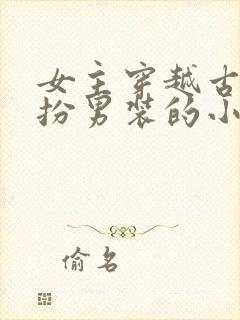 女主穿越古
扮男装的小
偷名